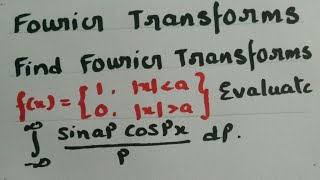 Fourier Transforms
Find Fourier Transforms
f(x) = { 1, |x|<a
0, |x|>a } Evaluate
∫_{-∞}^{∞} sin ap cos px / p dp.